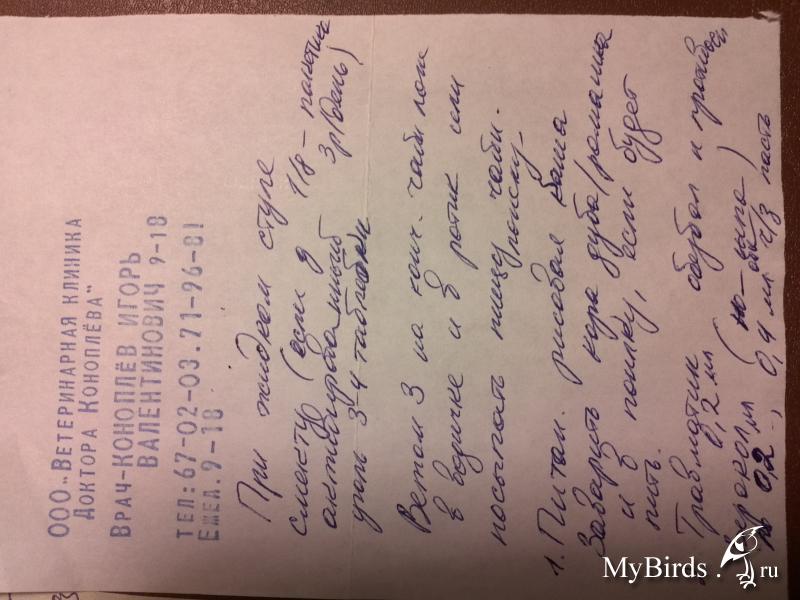 ООО „ВЕТЕРИНАРНАЯ КЛИНИКА
ДОКТОРА КОНОПЛЁВА"
ВРАЧ-КОНОПЛЁВ ИГОРЬ
ВАЛЕНТИНОВИЧ 9-18
ТЕЛ: 67-02-03. 71-96-81
ЕЖЕД. 9-18
При жидком стуле
смекту (если 1/8 - пакетика
активированный 3р/день)
уголь 3-4 таблетки
Ветом 3 на конч. чайн лож
в водичке и в ротик или
посыпать пищу
1. Питан. рисовая каша
Заварить кора дуба/ромашка
и в поилку, если будет
пить.
Травматин
0,2 мл
0,2 0,4 мл ч/з
MyBirds.ru